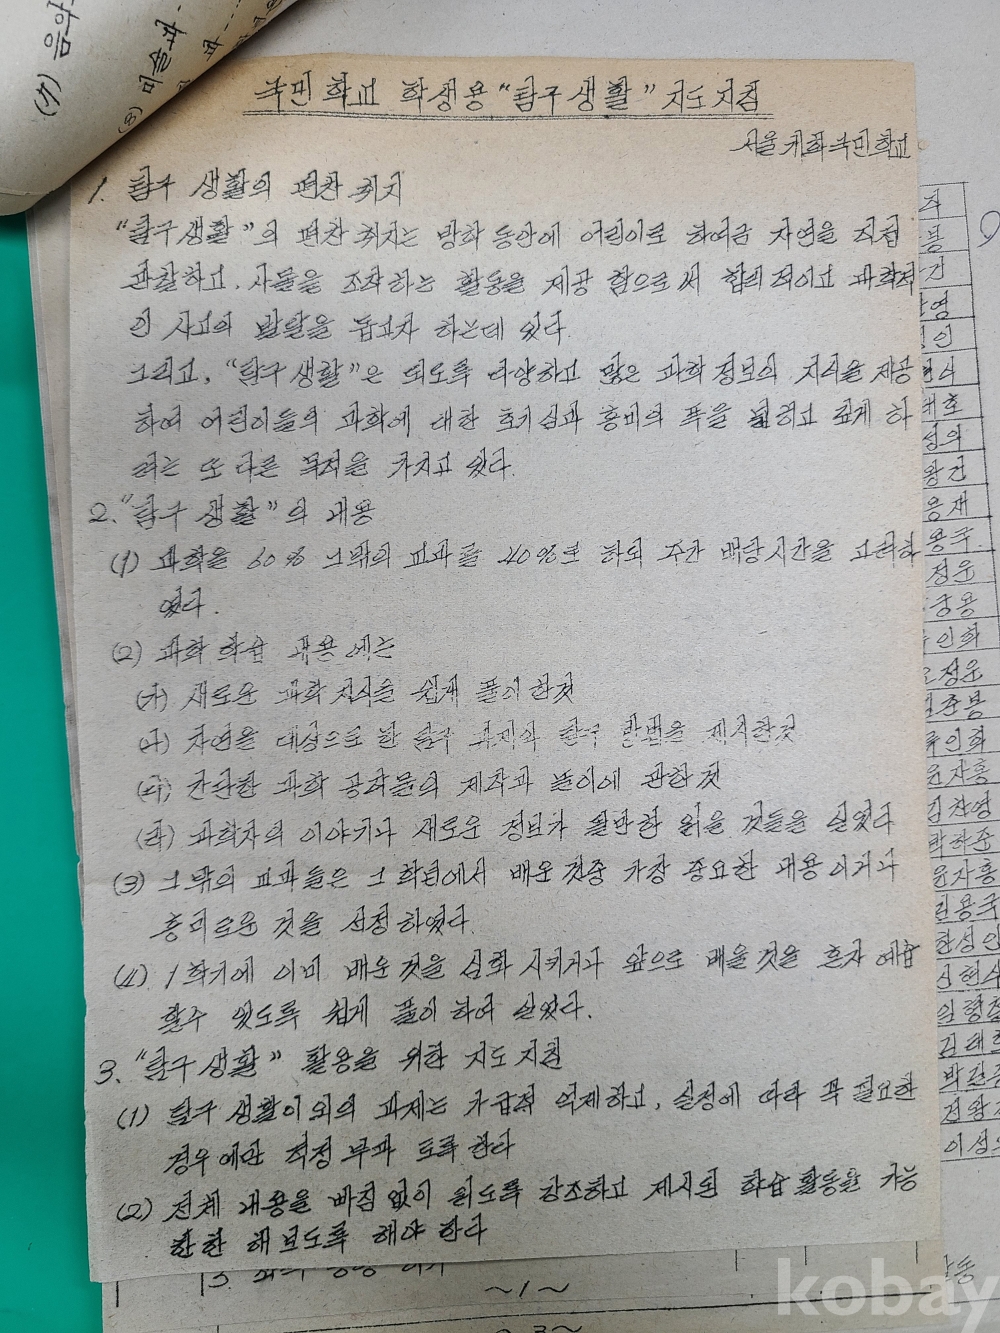 (ㅅ) 음악
(ㅇ) 미술과
국민학교 학생용 "탐구생활" 지도지침
서울개화국민학교
1. 탐구 생활의 편찬 취지
"탐구생활"의 편찬 취지는 방학 동안에 어린이로 하여금 자연을 직접
관찰하고, 사물을 조작하는 활동을 제공 함으로써 합리적이고 과학적
인 사고의 발달을 돕고자 하는데 있다.
그리고, "탐구생활"은 되도록 다양하고 많은 과학 정보의 지식을 제공
하여 어린이들의 과학에 대한 호기심과 흥미의 폭을 넓히고 깊게 하
려는 또 다른 목적을 가지고 있다.
2. "탐구 생활"의 내용
(1) 과학을 60% 그밖의 교과를 40%로 하되 주간 배당시간을 고려하
였다.
(2) 과학 학습 내용에는
(가) 새로운 과학 지식을 쉽게 풀이한것
(나) 자연을 대상으로 한 탐구 과제와 탐구 방법을 제시한것
(다) 간단한 과학 공작물의 제작과 놀이에 관한 것
(라) 과학자의 이야기나 새로운 정보가 될만한 읽을 것들을 실었다
(3) 그 밖의 교과들은 그 학년에서 배운 것중 가장 중요한 내용이거나
흥미로운 것을 선정하였다.
(4) 1학기에 이미 배운 것을 심화 시키거나 앞으로 배울 것을 혼자 예습
할수 있도록 쉽게 풀이 하여 실었다.
3. "탐구 생활" 활용을 위한 지도 지침
(1) 탐구 생활이외의 과제는 가급적 억제하고, 실정에 따라 꼭 필요한
경우에만 적정 부과 토록 한다
(2) 전체 내용을 빠짐없이 읽도록 강조하고 제시된 학습 활동을 가능
한한 해 보도록 해야 한다
~1~
~3~
대호
성의
왕건
응재
용국
정운
인화
정운
인화
윤자흥
김찬영
윤자흥
한성인
김태호
kobay